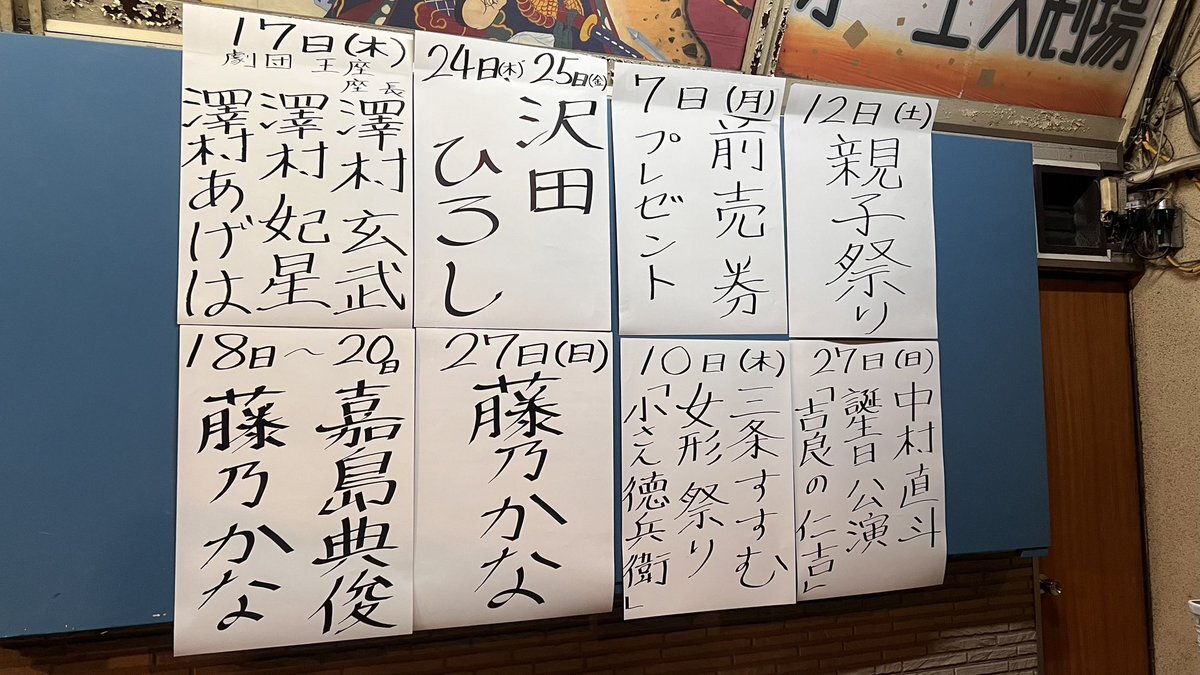 17日(木)
劇団王座
座長
澤村玄武
澤村妃星
澤村あげは
24日(木)25日(金)
沢田
ひろし
7日(月)
前売券
プレゼント
12日(土)
親子祭り
18日〜20日
嘉島典俊
藤乃かな
27日(日)
藤乃かな
10日(木)
三条すすむ
女形祭り
「小さん徳兵衛」
27日(日)
中村直斗
誕生日公演
「吉良の仁吉」